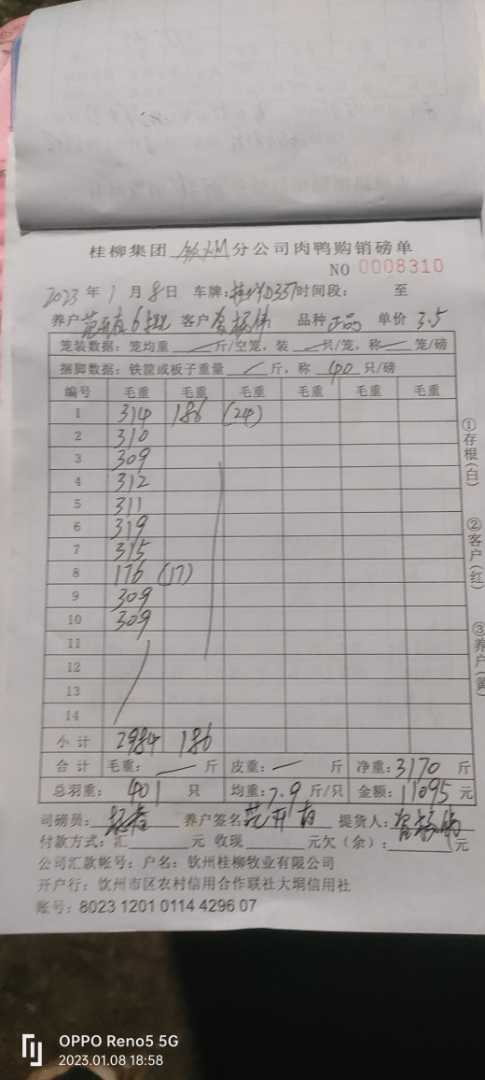 桂柳集团 钦州 分公司肉鸭购销磅单
NO 0008310
2023 年 1 月 8 日 车牌: 时间段: 至
养户 范开有6批 客户 杨伟 品种 正品 单价 3.5
笼装数据: 笼均重 斤/空笼, 装 只/笼, 称 笼/磅
捆脚数据: 铁筐或板子重量 斤, 称 40 只/磅
编号 毛重 毛重 毛重 毛重 毛重 毛重
1 314 186 (24)
2 310
3 309
4 312
5 311
6 319
7 315
8 176 (17)
9 309
10 309
11
12
13
14
小计 2984 186
合计 毛重: 斤 皮重: 斤 净重: 3170 斤
总羽重: 401 只 均重: 7.9 斤/只 金额: 11095 元
司磅员: 养户签名 范开有 提货人:
付款方式: 汇 元 收现 元欠(余): 元
公司汇款帐号: 户名: 钦州桂柳牧业有限公司
开户行: 钦州市区农村信用合作联社大垌信用社
账号: 8023 1201 0114 4296 07
①存根(白)
②客户(红)
③养户(黄)
OPPO Reno5 5G
2023.01.08 18:58